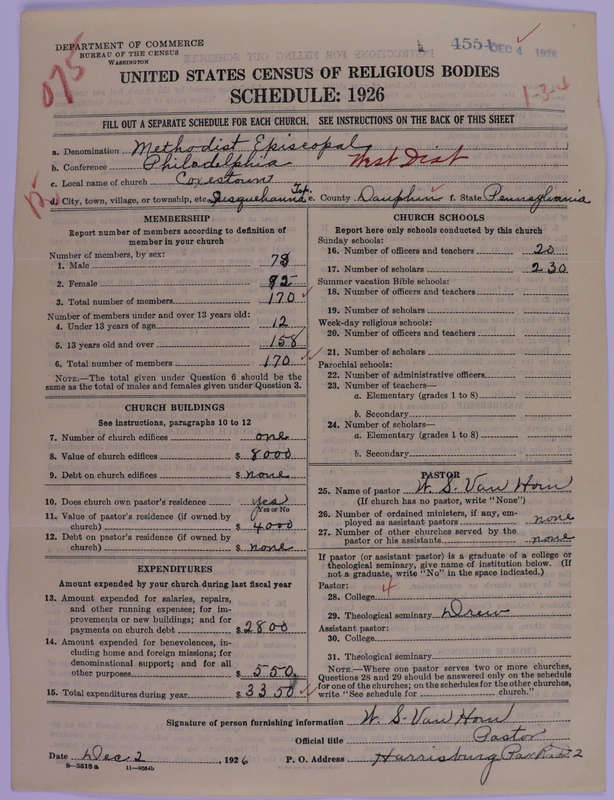 DEPARTMENT OF COMMERCE
BUREAU OF THE CENSUS
WASHINGTON
4551
DEC 4 1926
075
UNITED STATES CENSUS OF RELIGIOUS BODIES
SCHEDULE: 1926
1-3-4
FILL OUT A SEPARATE SCHEDULE FOR EACH CHURCH. SEE INSTRUCTIONS ON THE BACK OF THIS SHEET
a. Denomination Methodist Episcopal
b. Conference Philadelphia West Dist
c. Local name of church Coxestown
d. City, town, village, or township, etc. Susquehanna Tsp. e. County Dauphin f. State Pennsylvania
MEMBERSHIP
Report number of members according to definition of member in your church
Number of members, by sex:
1. Male 78
2. Female 92
3. Total number of members 170
Number of members under and over 13 years old:
4. Under 13 years of age 12
5. 13 years old and over 158
6. Total number of members 170
NOTE.—The total given under Question 6 should be the same as the total of males and females given under Question 3.
CHURCH BUILDINGS
See instructions, paragraphs 10 to 12
7. Number of church edifices one
8. Value of church edifices $ 8000
9. Debt on church edifices $ none
10. Does church own pastor's residence yes
Yes or No
11. Value of pastor's residence (if owned by church) $ 4000
12. Debt on pastor's residence (if owned by church) $ none
EXPENDITURES
Amount expended by your church during last fiscal year
13. Amount expended for salaries, repairs, and other running expenses; for improvements or new buildings; and for payments on church debt $ 2800
14. Amount expended for benevolences, including home and foreign missions; for denominational support; and for all other purposes $ 550
15. Total expenditures during year $ 3350
CHURCH SCHOOLS
Report here only schools conducted by this church
Sunday schools:
16. Number of officers and teachers 20
17. Number of scholars 230
Summer vacation Bible schools:
18. Number of officers and teachers
19. Number of scholars
Week-day religious schools:
20. Number of officers and teachers
21. Number of scholars
Parochial schools:
22. Number of administrative officers
23. Number of teachers—
a. Elementary (grades 1 to 8)
b. Secondary
24. Number of scholars—
a. Elementary (grades 1 to 8)
b. Secondary
PASTOR
25. Name of pastor W. S. Van Horn
(If church has no pastor, write "None")
26. Number of ordained ministers, if any, employed as assistant pastors none
27. Number of other churches served by the pastor or his assistants none
If pastor (or assistant pastor) is a graduate of a college or theological seminary, give name of institution below. (If not a graduate, write "No" in the space indicated.)
Pastor:
28. College 4
29. Theological seminary Drew
Assistant pastor:
30. College
31. Theological seminary
NOTE.—Where one pastor serves two or more churches, Questions 28 and 29 should be answered only on the schedule for one of the churches; on the schedules for the other churches, write "See schedule for church."
Signature of person furnishing information W. S. Van Horn
Official title Pastor
Date Dec 2, 1926 P. O. Address Harrisburg Pa 2
8—5518a 11—9554b